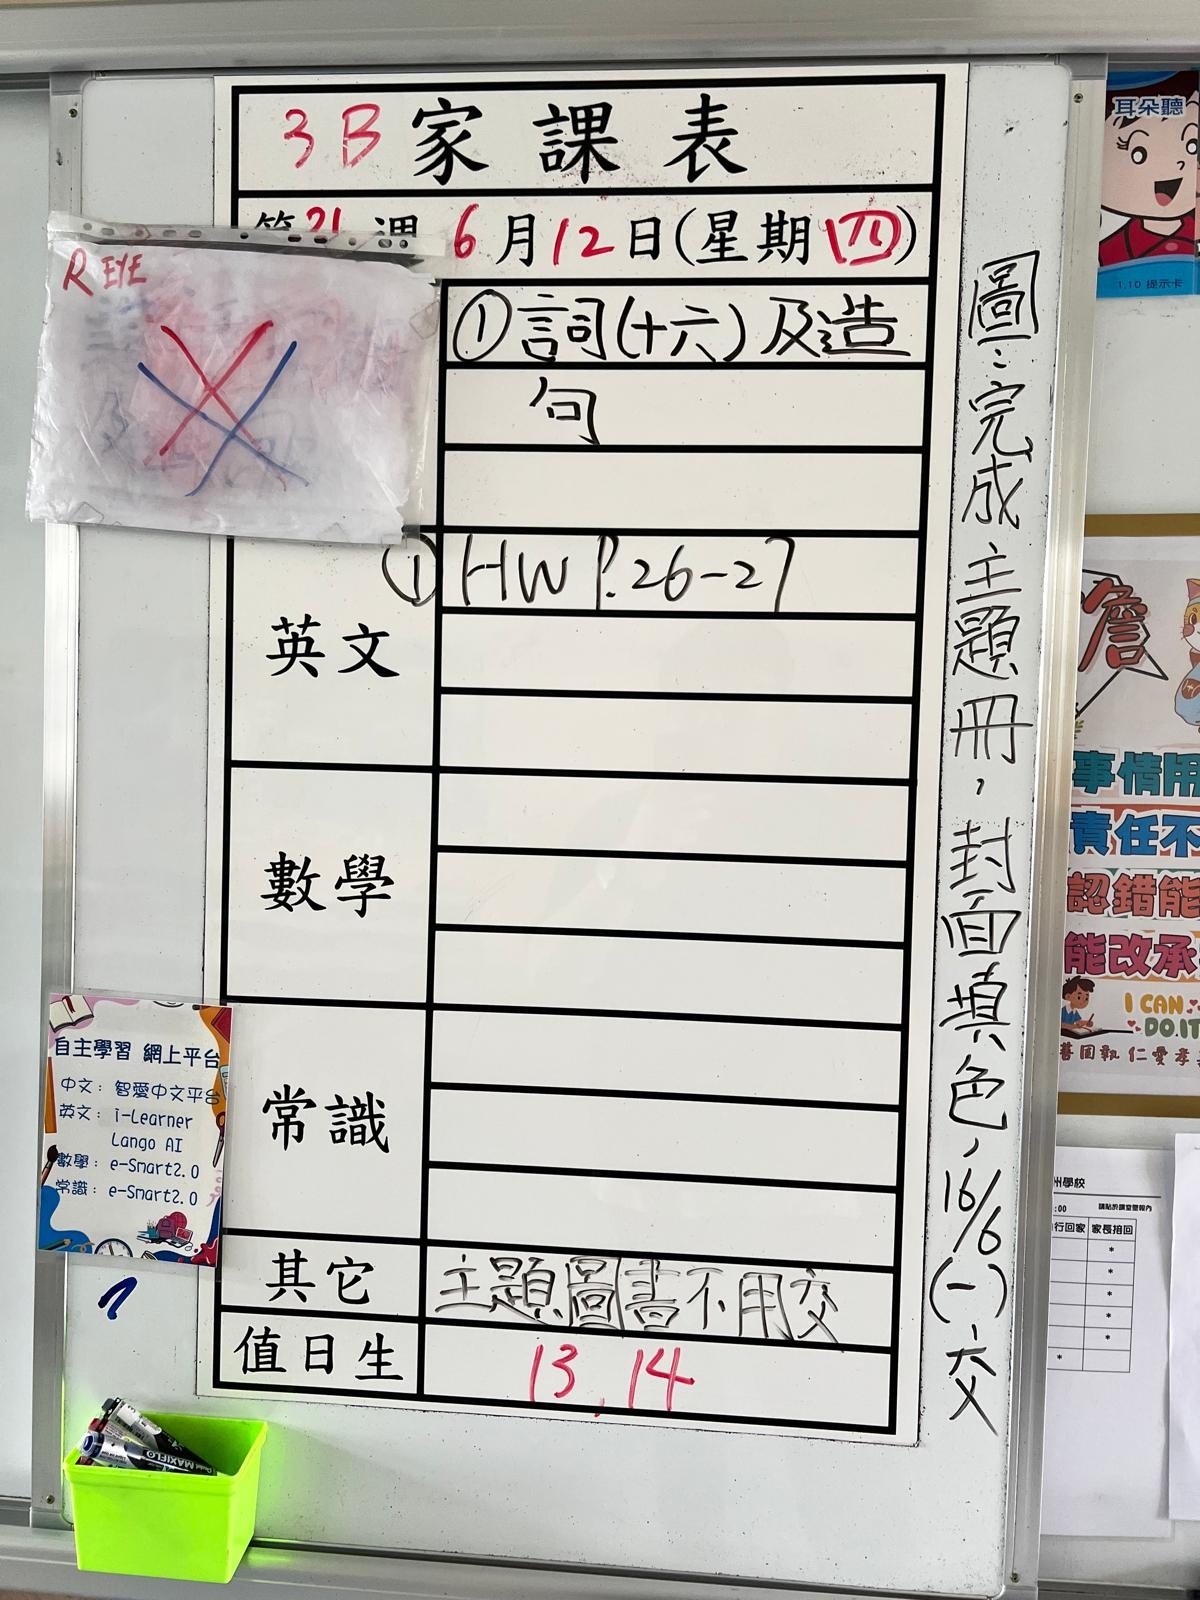 3B 家課表
第21週 6月12日(星期四)
R EYE
①詞(十六)及造
句
英文
① HW P.26-27
數學
常識
其它
主題圖書不用交
值日生
13, 14
圖:完成主題冊,封面填色,16/6(一)交
自主學習 網上平台
中文: 智愛中文平台
英文: i-Learner
Lango AI
數學: e-Smart2.0
常識: e-Smart2.0
MAXIFLO
耳朵聽
1.10 提示卡
詹
事情用
責任不
認錯能
能改承
I CAN
DO.IT
善固執 仁愛孝
州學校
:00
請貼於課室壁報內
行回家 家長接回
*
*
*
*
*
*